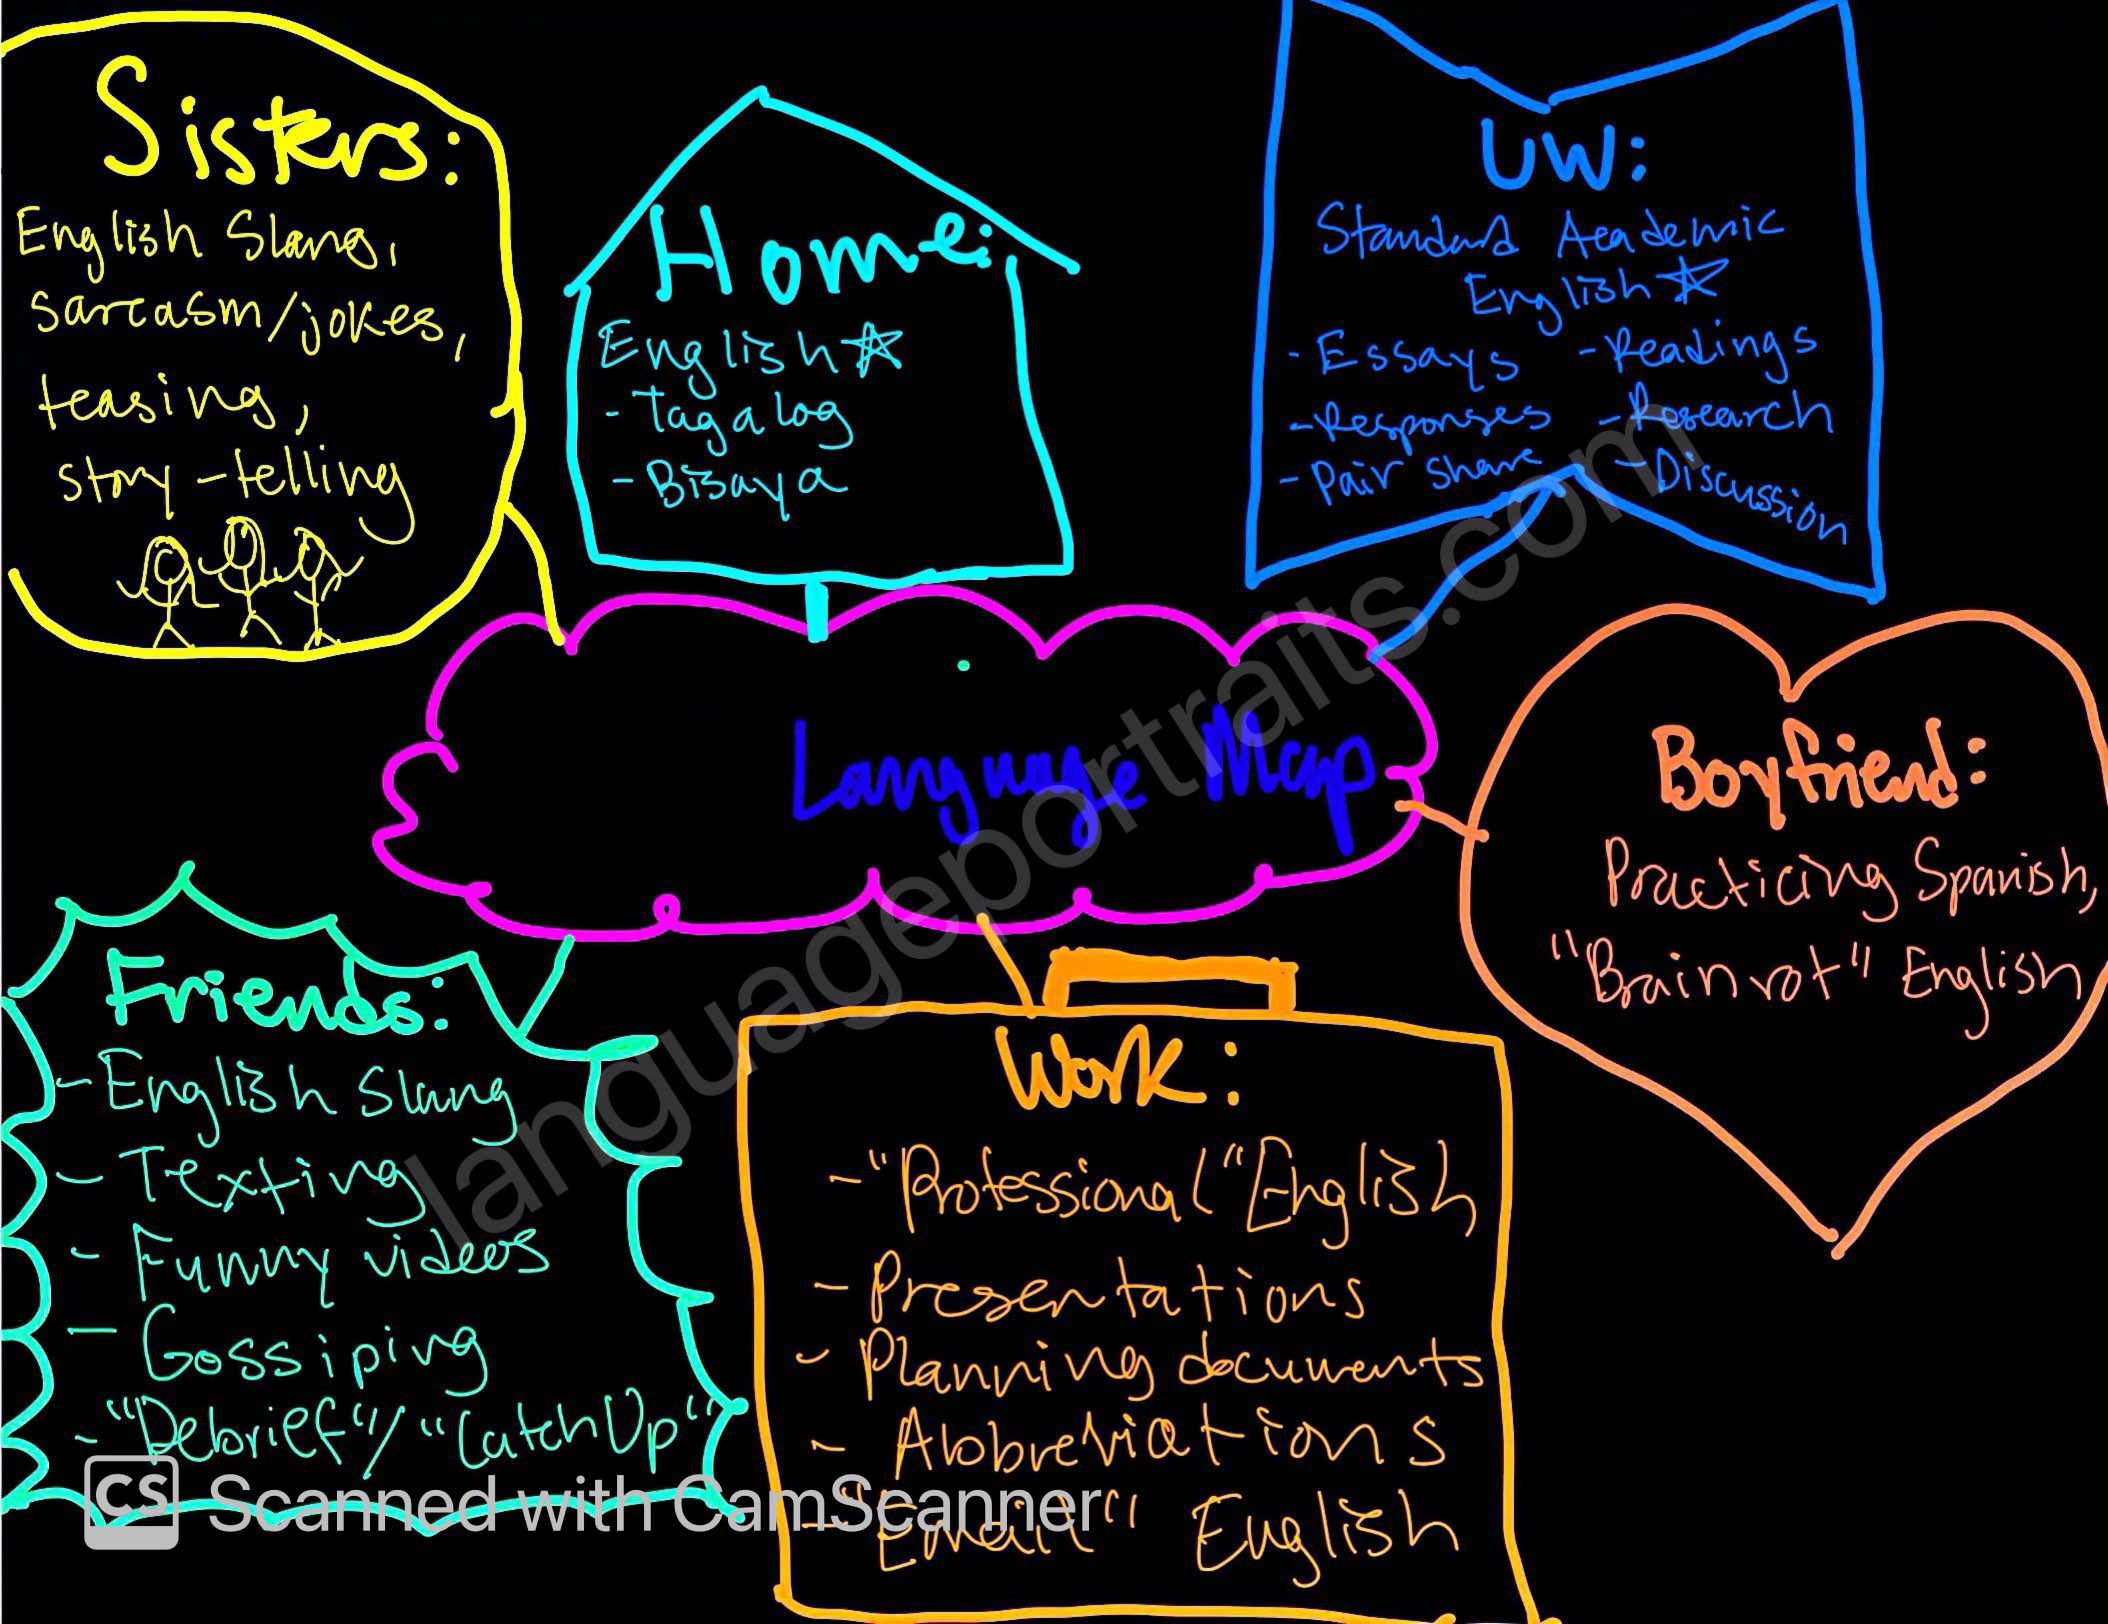 Sisters:
English Slang,
sarcasm/jokes,
teasing,
story-telling
Home:
English
- Tagalog
- Bisaya
UW:
Standard Academic
English
- Essays
- Responses
- Pair share
- Readings
- Research
- Discussion
Language Map
Boyfriend:
Practicing Spanish,
"Brainrot" English
Friends:
- English slang
- Texting
- Funny videos
- Gossiping
- "Debrief"/"Catch Up"
Work:
- "Professional" English
- Presentations
- Planning documents
- Abbreviations
- "Email" English
languageportraits.com
CS Scanned with CamScanner